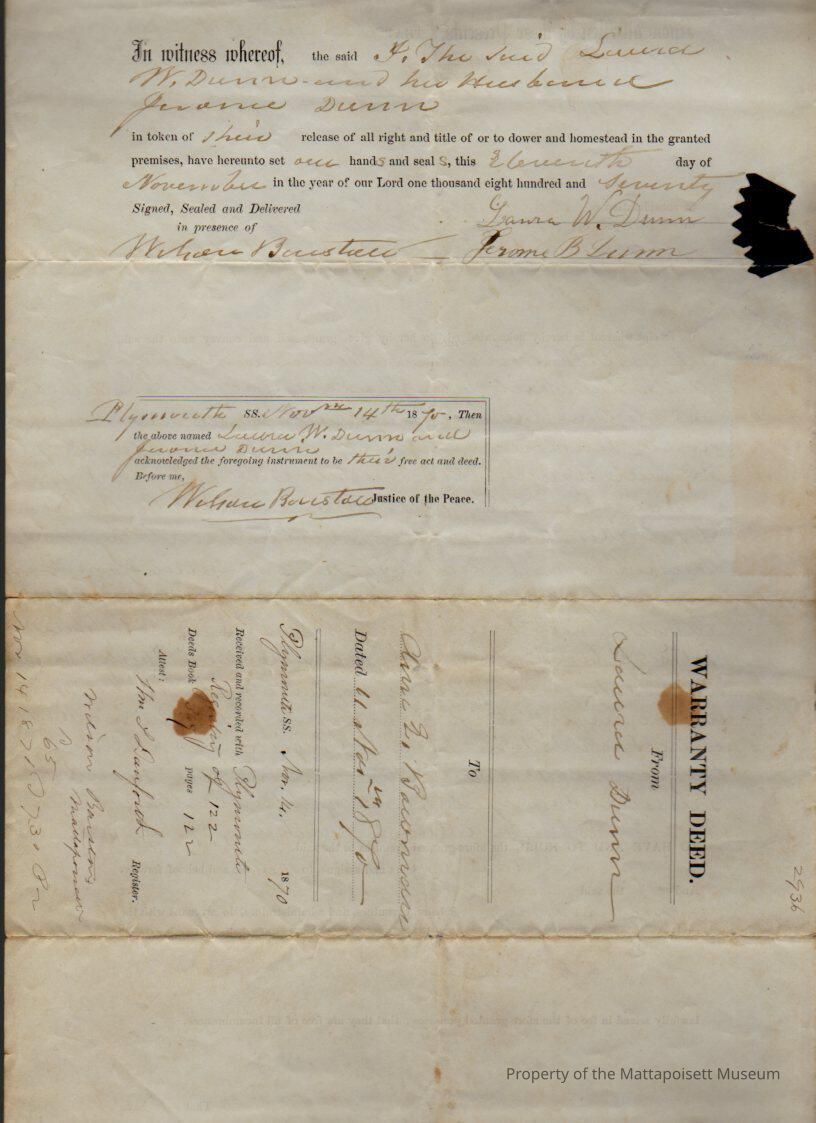 In witness whereof, the said I, The said Laura
W. Dunn and her Husband
Jerome Dunn
in token of their release of all right and title of or to dower and homestead in the granted
premises, have hereunto set our hands and seals, this Eleventh day of
November in the year of our Lord one thousand eight hundred and Seventy
Signed, Sealed and Delivered
in presence of
Laura W. Dunn
Wilson Barstow
Jerome B Dunn
Plymouth SS. Nov 14th 1870, Then
the above named Laura W. Dunn and
Jerome Dunn
acknowledged the foregoing instrument to be their free act and deed.
Before me,
Wilson Barstow Justice of the Peace.
2936
WARRANTY DEED.
From
Laura Dunn
To
Dated 11 Nov 1870
Plymouth SS. Nov. 14. 1870
Received and recorded with Plymouth
Registry of
Deeds Book pages 122
Attest:
Wm S Danforth Register.
Wilson Barstow
65
Property of the Mattapoisett Museum